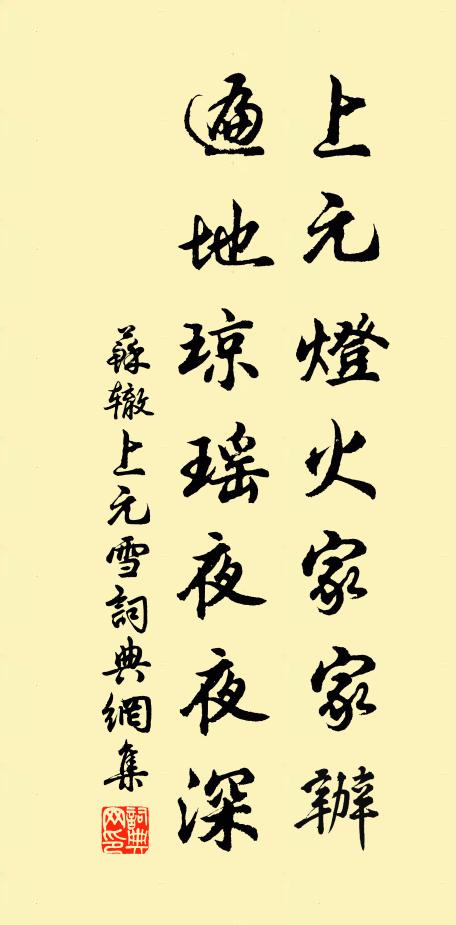 上元燈火家家辦
遍地琼瑶夜夜深
蘇辙上元雪詞典網集
詞典
网印